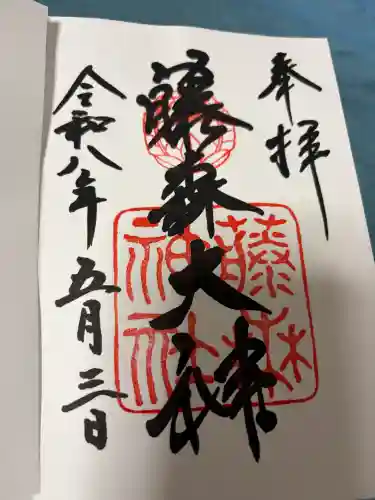 奉拝
藤森大神
藤森神社
令和八年五月三日